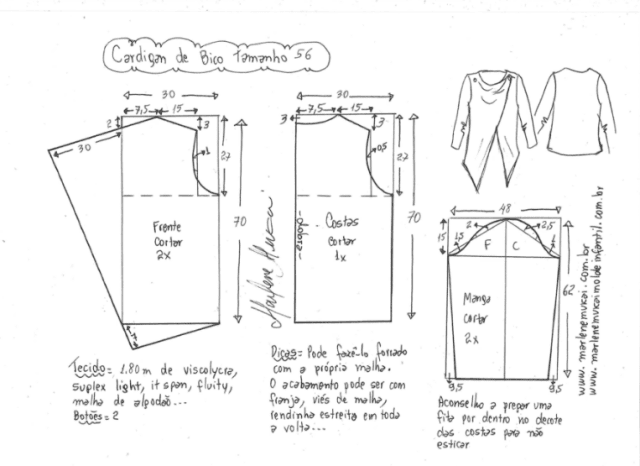 Cardigan de Bico Tamanho 56
30
7,5
15
2
3
30
1
27
70
Frente
cortar
2x
7
30
7,5
15
3
3
0,5
27
70
-dobra-
Costas
cortar
1x
Marlene Mukai
48
2
2,5
15
1,5
1
F
C
62
Manga
cortar
2x
9,5
9,5
www.marlenemukai.com.br
www.marlenemukaimoldeinfantil.com.br
Tecido= 1.80m de viscolycra,
suplex light, it span, fluity,
malha de algodão...
Botões= 2
Dicas= Pode fazê-lo forrado
com a própria malha.
O acabamento pode ser com
franja, viés de malha,
rendinha estreita em toda
a volta...
Aconselho a pregar uma
fita por dentro no decote
das costas para não
esticar